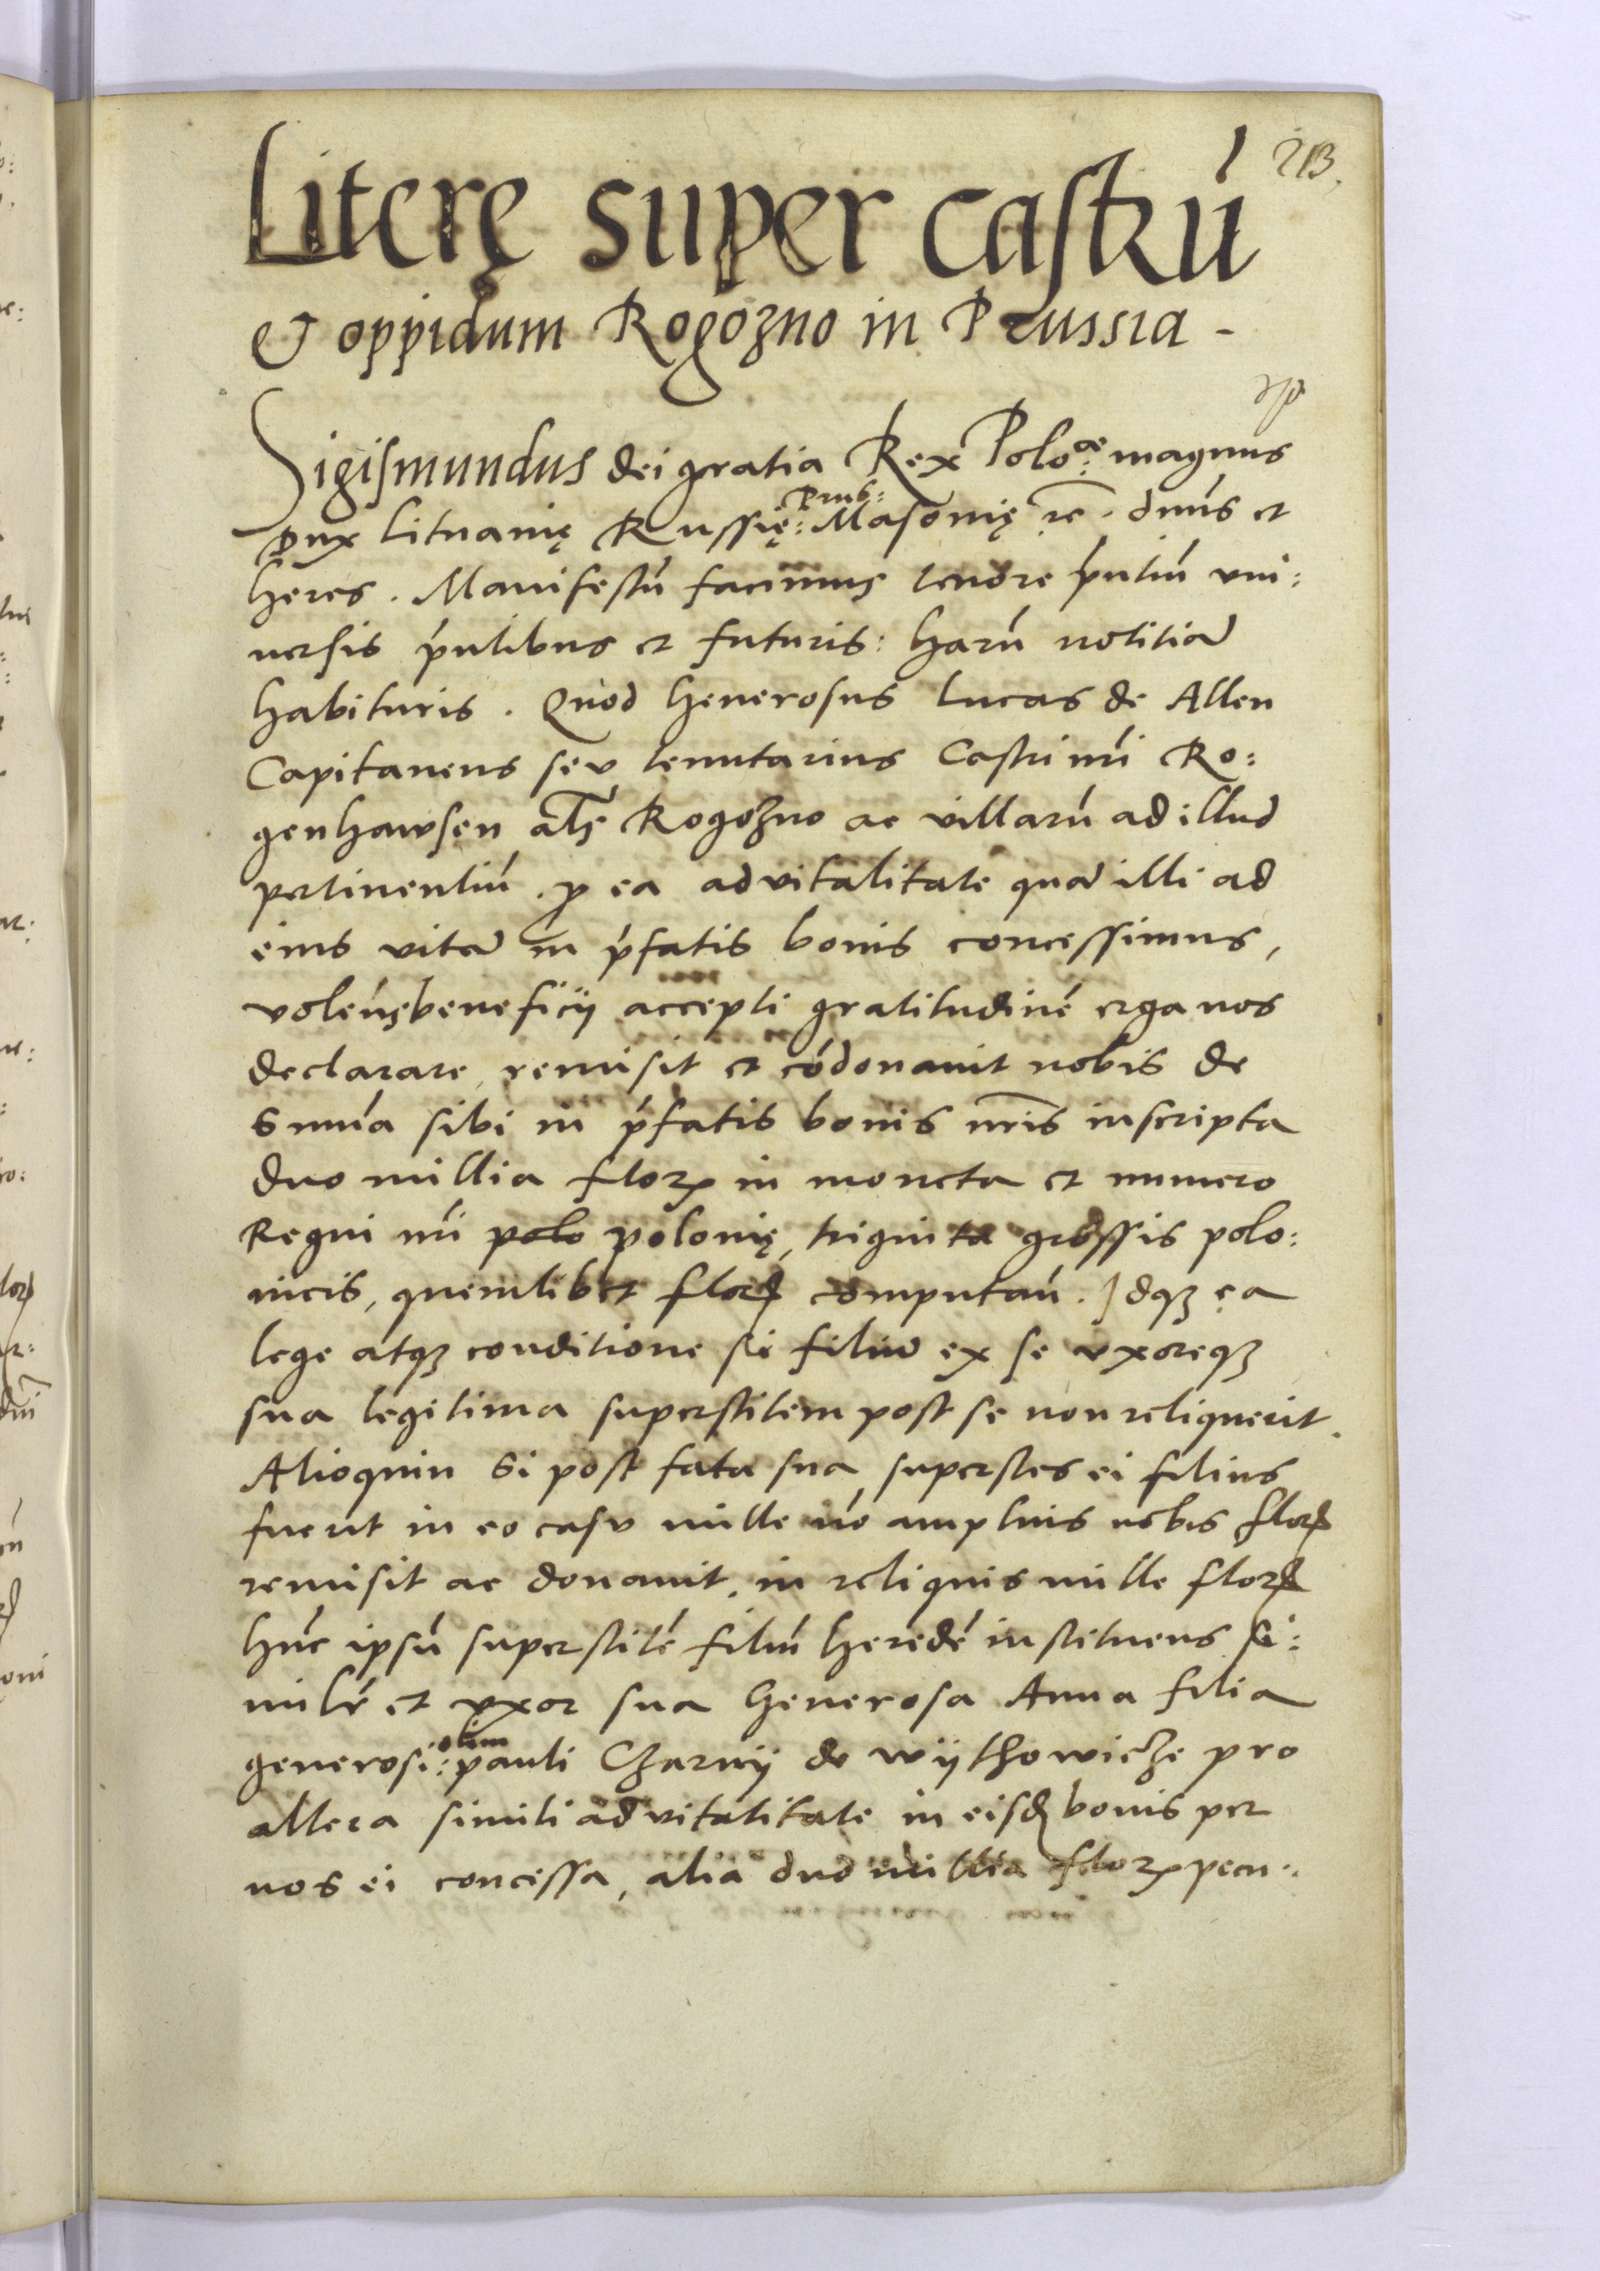 213.
Literę super castrú
& oppidum Rogozno in Prussia -
Sigismundus dei gratia Rex Poloæ: magnus
Dux Lituanię Russię: Prus: Masouię rc. dnus et
heres. Manifestú facimus tenore pńtiú vni:
uersis pńtibus et futuris: harú notitiā
habituris. Quod Generosus Lucas de Allen
Capitaneus seu tenutarius Castri nri Ro:
genhawsen als Rogozno ac villarú ad illud
pertinentiú. p ea advitalitate quā illi ad
eius vitā in pfatis bonis concessimus,
volens beneficij accepti gratitudiné erga nos
declarare, remisit et códonauit nobis de
Summa sibi in pfatis bonis nris inscripta
duo millia florꝝ in moneta et numero
Regni nri polo polonię, triginta grossis polo:
nicis, quemlibet florꝝ computań. Idqꝫ ea
lege atqꝫ conditione si filiū ex se vxoreqꝫ
sua legitima superstitem post se non reliquerit.
Alioquin Si post fata sua superstes ei filius
fuerit in eo casu mille nó amplius nobis florꝝ
remisit ac donauit, in reliquis mille florꝝ
húc ipsú superstité filiú heredé instituens Si:
milr et vxor sua Generosa Anna filia
generosi: olim pauli Czarnij de wijthowicze pro
altera simili advitalitate in eisdꝫ bonis per
nos ei concessa, alia duo millia florꝝ pecu: